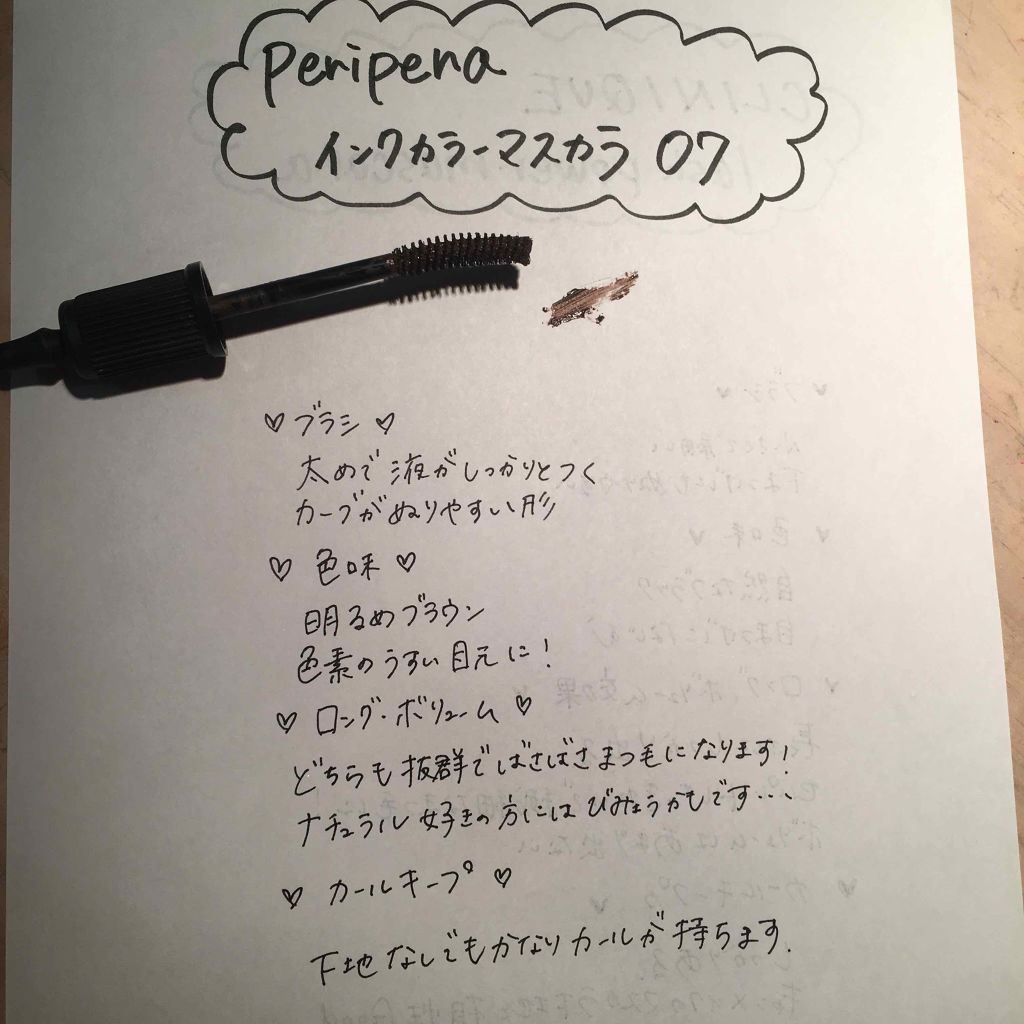 peripera
インクカラーマスカラ 07
♡ ブラシ ♡
太めで液がしっかりとつく
カーブがぬりやすい形
♡ 色味 ♡
明るめブラウン
色素のうすい目元に!
♡ ロング・ボリューム ♡
どちらも抜群でばさばさまつ毛になります!
ナチュラル好きの方にはびみょうかもです...
♡ カールキープ ♡
下地なしでもかなりカールが持ちます.